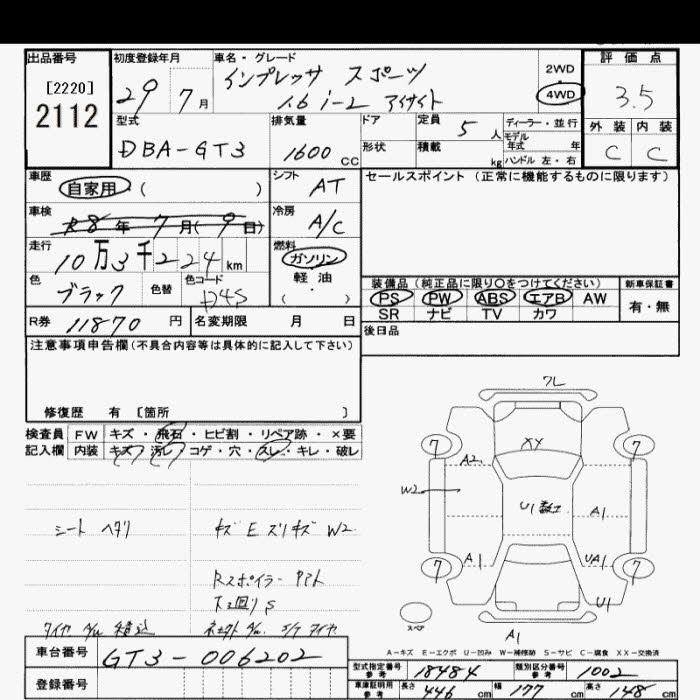 出品番号
[2220]
2112
初度登録年月
29 7月
車名・グレード
インプレッサ スポーツ
1.6 i-L アイサイト
2WD
4WD
評価点
3.5
外装 内装
C C
型式
DBA-GT3
排気量
1600 CC
ドア
形状
定員 5人
積載 kg
ディーラー・並行
モデル
年式 年
ハンドル 左・右
車歴
自家用 ( )
シフト
AT
セールスポイント (正常に機能するものに限ります)
車検
R8年 7月(9日)
冷房
A/C
走行
10万3千224km
燃料
ガソリン
軽・油
( )
色
ブラック
色替
色コード
D4S
装備品 (純正品に限り○をつけてください)
新車保証書
PS PW ABS エアB AW
有・無
SR ナビ TV カワ
R券 11870 円
名変期限 月 日
後日品
注意事項申告欄(不具合内容等は具体的に記入して下さい)
修復歴 有 〔箇所 〕
検査員 FW キズ・飛石・ヒビ割・リペア跡・×要
記入欄 内装 キズ・汚レ・コゲ・穴・スレ・キレ・破レ
シート ヘタリ
キズ E ズリキズ W2
Rスポイラー
下廻り S
タイヤ 積込
タイヤ
フレ
7 7
XY
A2
W2
U1
A1
A1
UA1
7 7
U1
スペア
A1
A-キズ E-エクボ U-凹み W-補修跡 S-サビ C-腐食 XX-交換済
車台番号
GT3-006202
登録番号
型式指定番号
参考
18484
類別区分番号
参考
1002
車庫証明用
参考
長さ 446 cm 幅 177 cm 高さ 148 cm